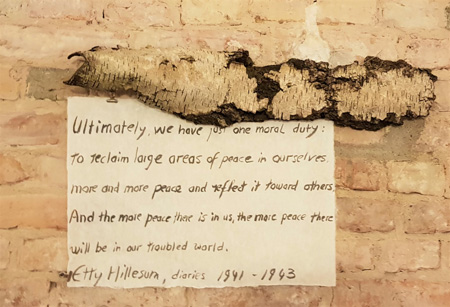 Ultimately, we have just one moral duty:
to reclaim large areas of peace in ourselves,
more and more peace and reflect it toward others.
And the more peace there is in us, the more peace there
will be in our troubled world.
Etty Hillesum, diaries 1941 - 1943